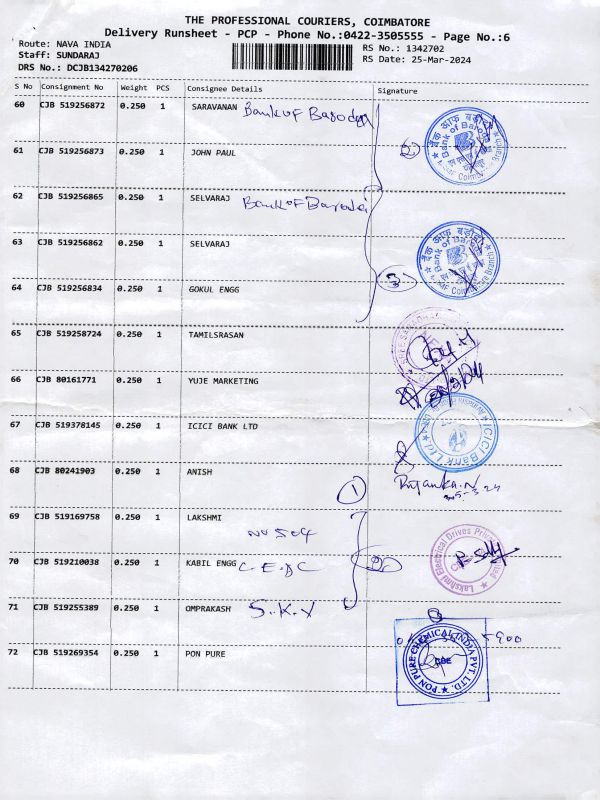 THE PROFESSIONAL COURIERS, COIMBATORE
Delivery Runsheet - PCP - Phone No.:0422-3505555 - Page No.:6
Route: NAVA INDIA
Staff: SUNDARAJ
DRS No.: DCJB134270206
RS No.: 1342702
RS Date: 25-Mar-2024
S No Consignment No Weight PCS Consignee Details Signature
60 CJB 519256872 0.250 1 SARAVANAN Bank of Baroda
61 CJB 519256873 0.250 1 JOHN PAUL
बैंक ऑफ़ बड़ौदा
Bank of Baroda
62 CJB 519256865 0.250 1 SELVARAJ Bank of Baroda
63 CJB 519256862 0.250 1 SELVARAJ
बैंक ऑफ़ बड़ौदा
Bank of Baroda
64 CJB 519256834 0.250 1 GOKUL ENGG 3
65 CJB 519258724 0.250 1 TAMILSRASAN
66 CJB 80161771 0.250 1 YUJE MARKETING
67 CJB 519378145 0.250 1 ICICI BANK LTD
ICICI Bank Ltd
68 CJB 80241903 0.250 1 ANISH
1
69 CJB 519169758 0.250 1 LAKSHMI
No 504
Lakshmi Electrical Drives Private Limited
70 CJB 519210038 0.250 1 KABIL ENGG
71 CJB 519255389 0.250 1 OMPRAKASH S.K.V
72 CJB 519269354 0.250 1 PON PURE
PON PURE CHEMICAL INDIA PVT. LTD.
CBE